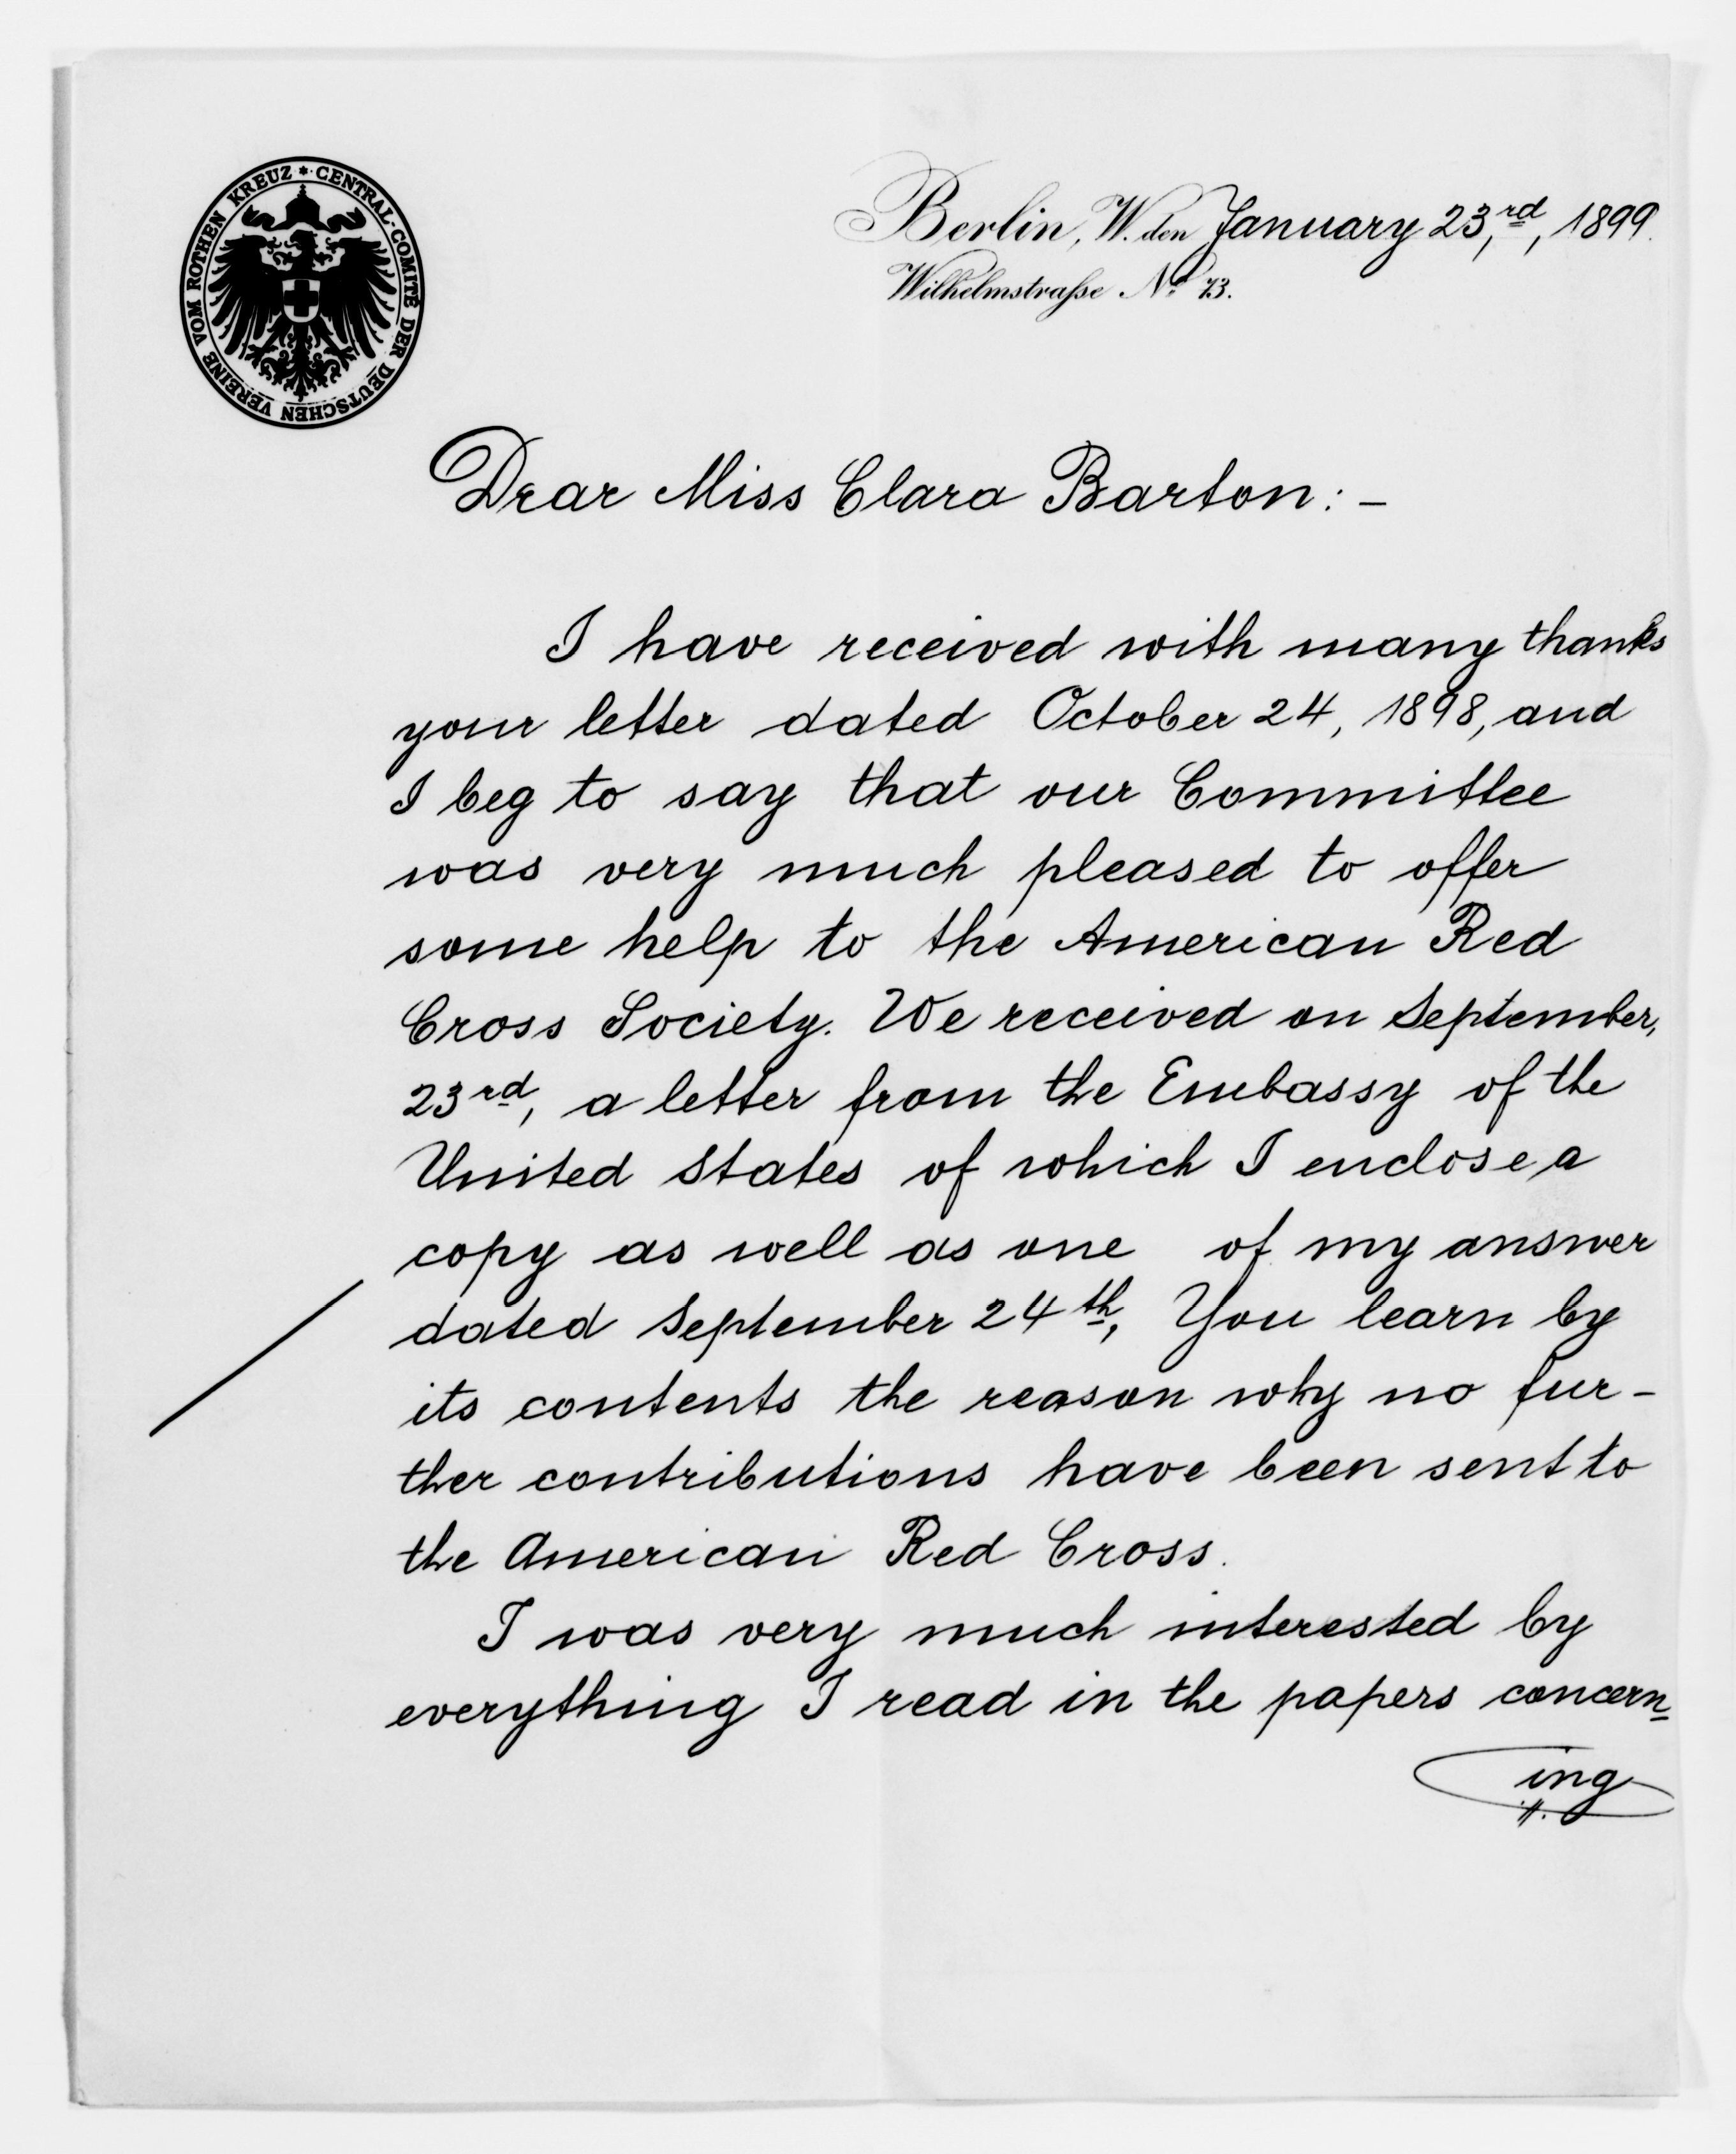 CENTRAL-COMITÉ DER DEUTSCHEN VEREINE VOM ROTHEN KREUZ *
Berlin, W. den January 23,rd, 1899.
Wilhelmstraſse No 73.
Dear Miss Clara Barton: –
I have received with many thanks
your letter dated October 24, 1898, and
I beg to say that our Committee
was very much pleased to offer
some help to the American Red
Cross Society. We received on September,
23rd, a letter from the Embassy of the
United States of which I enclose a
copy as well as one of my answer
dated September 24th, You learn by
its contents the reason why no fur-
ther contributions have been sent to
the American Red Cross.
I was very much interested by
everything I read in the papers concern=
ing